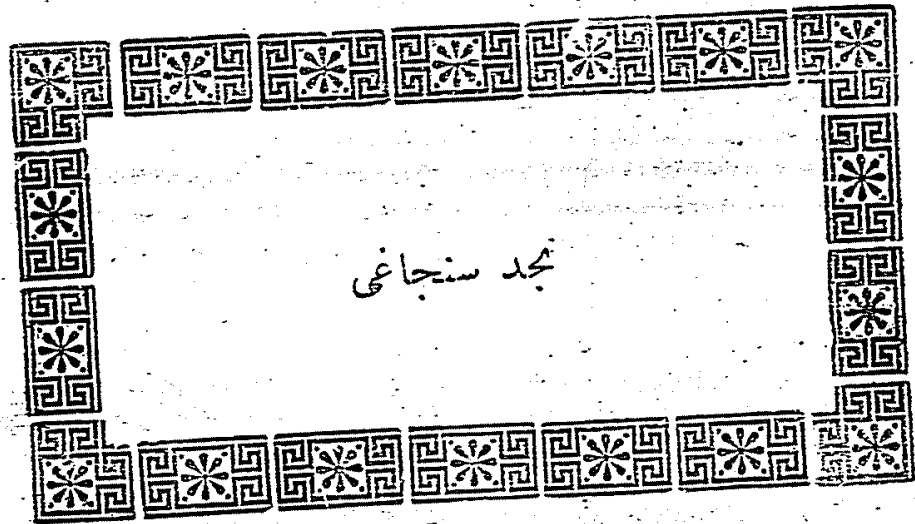 نجد سنجاغی